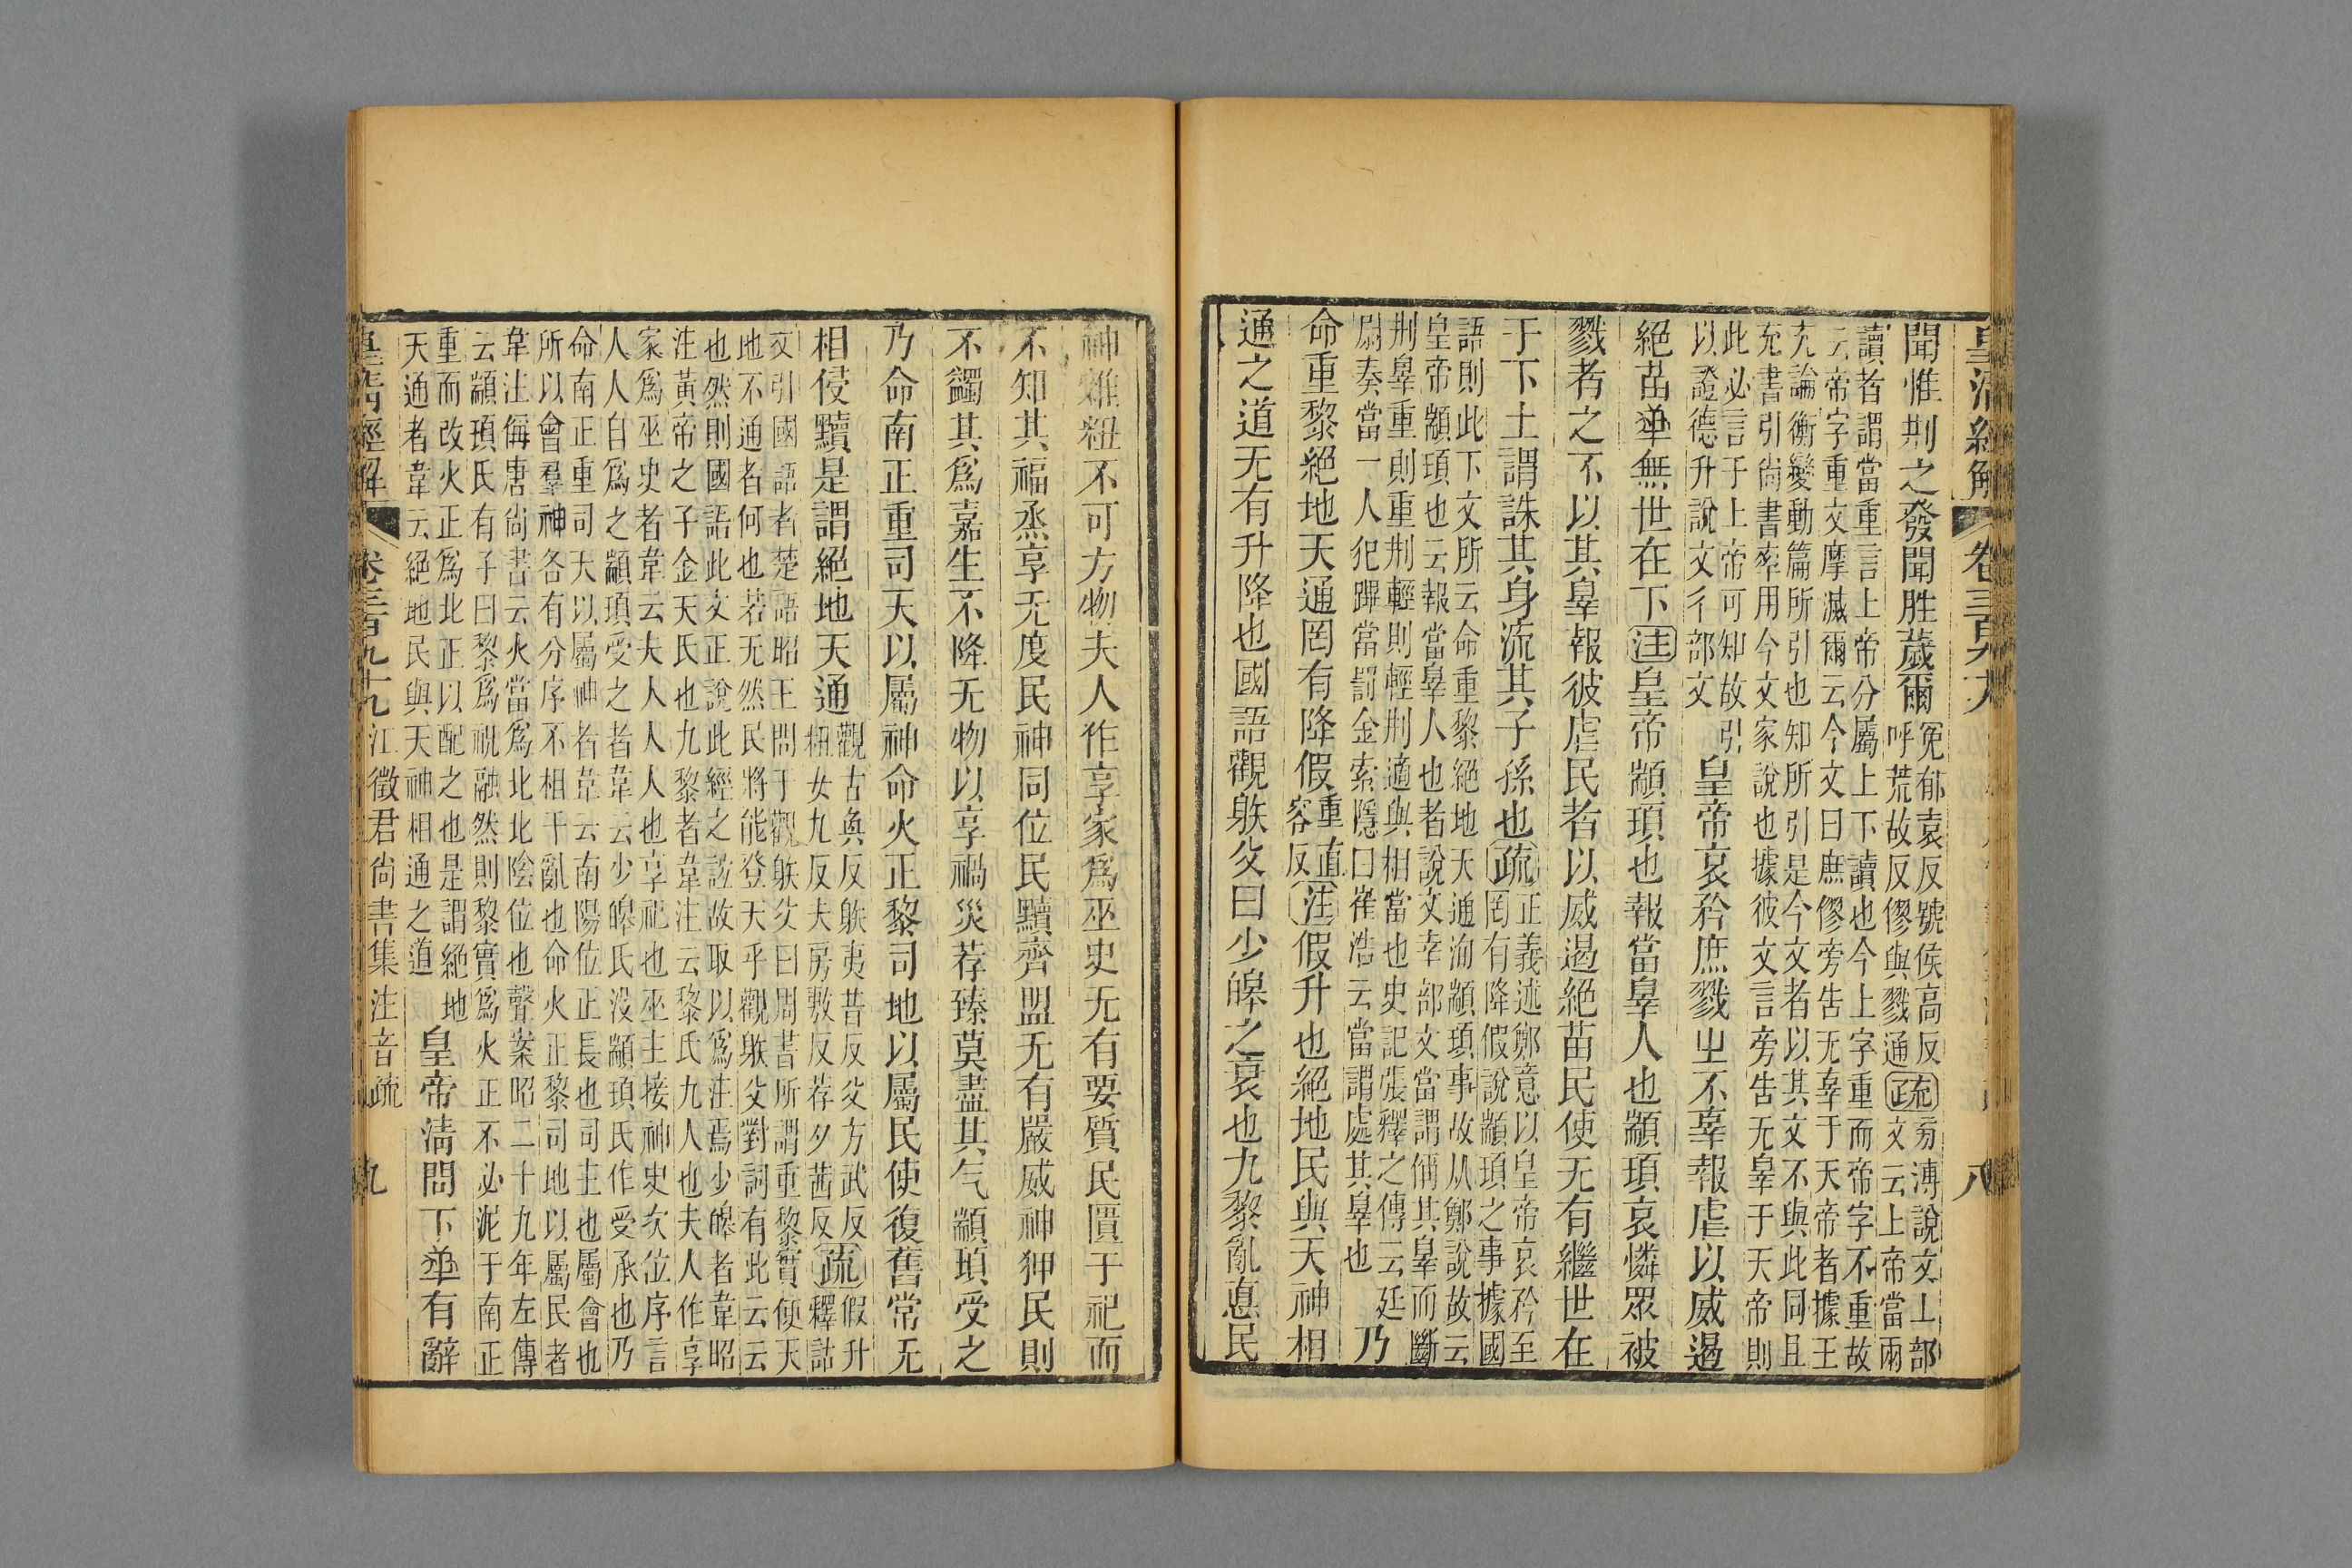 皇清經解 卷三百九十九 八
聞惟荆之發聞胜薉爾
冤郁袁反號侯高反
呼荒故反僇與戮通
疏
㫄溥說文丄部
文云上帝當兩
讀者謂當重言上帝分屬上下讀也今上字重而帝字不重故
云帝字重文摩滅爾云今文曰庶僇旁告无辜于天帝者據王
充論衡變動篇所引也知所引是今文者以其文不與此同且
充書引尙書率用今文家說也據彼文言旁告无辠于天帝則
此必言于上帝可知故引
以證德升說文彳部文
皇帝哀矜庶戮㞢不辜報虐以威遏
絕苗𠦬無世在下注皇帝顓頊也報當辠人也顓頊哀憐眾被
戮者之不以其辠報彼虐民者以威遏絕苗民使无有繼世在
于下土謂誅其身流其子孫也疏
正義述鄭意以皇帝哀矜至
罔有降假說顓頊之事據國
語則此下文所云命重黎絕地天通洵顓頊事故从鄭說故云
皇帝顓頊也云報當辠人也者說文㚔部文當謂㒳其辠而斷
荆辠重則重荆輕則輕荆適與相當也史記張釋之傳云廷
尉奏當一人犯蹕當罰金索隱曰崔浩云當謂處其辠也
乃
命重黎絕地天通罔有降假
重直
容反
注假升也絕地民與天神相
通之道无有升降也國語觀䠶父曰少皞之衰也九黎亂悳民
神雜糅不可方物夫人作享家爲巫史无有要質民匱于祀而
不知其福烝享无度民神同位民黷齊盟无有嚴威神狎民則
不蠲其爲嘉生不降无物以享禍災荐臻莫盡其气顓頊受之
乃命南正重司天以屬神命火正黎司地以屬民使復舊常无
相侵黷是謂絕地天通
觀古奐反䠶夷昔反父方武反
糅女九反夫房敷反荐夕茜反
疏
假升
釋詁
文引國語者楚語昭王問于觀䠶父曰周書所謂重黎實使天
地不通者何也若无然民將能登天乎觀䠶父對詞有此云云
也然則國語此文正說此經之誼故取以爲注焉少皞者韋昭
注黃帝之子金天氏也九黎者韋注云黎氏九人也夫人作享
家爲巫史者韋云夫人人人也享祀也巫主接神史次位序言
人人自爲之顓頊受之者韋云少皞氏没顓頊氏作受承也乃
命南正重司天以屬神者韋云南陽位正長也司主也屬會也
所以會羣神各有分序不相干亂也命火正黎司地以屬民者
韋注侮唐尙書云火當爲北北陰位也聲案昭二十九年左傳
云顓頊氏有子曰黎爲祝融然則黎實爲火正不必泥于南正
重而改火正爲北正以配之也是謂絕地
天通者韋云絕地民與天神相通之道
皇帝淸問下𠦬有辭
皇淸經解 卷三百九十九 江徵君尙書集注音疏 九